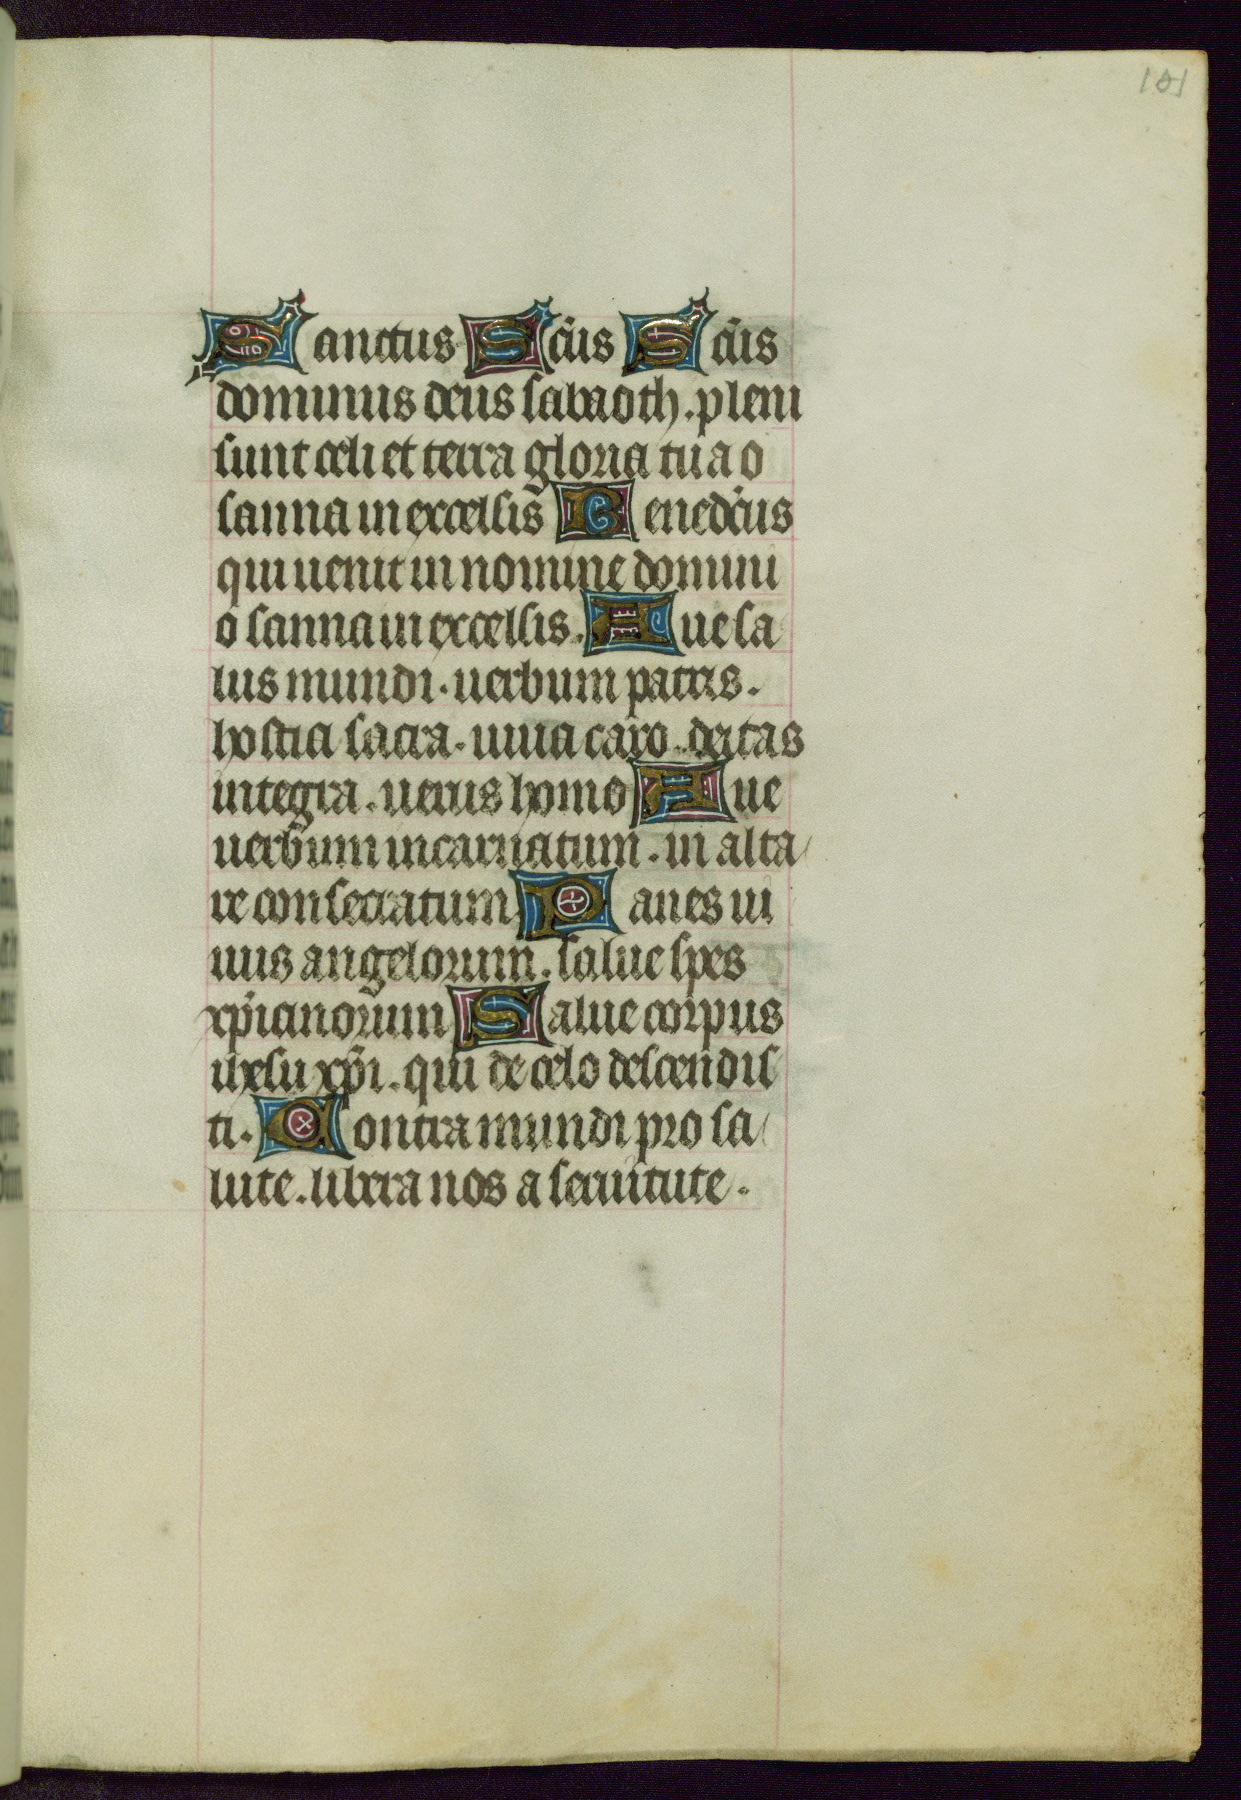 101
Sanctus Scūs Scūs
dominus deus sabaoth. pleni
sunt celi et terra gloria tua o
sanna in excelsis Benedcūs
qui uenit in nomine domini
o sanna in excelsis. Aue sa
lus mundi. uerbum patris.
hostia sacra. uiua caro. deitas
integra. uerus homo Aue
uerbum incarnatum. in alta
re consecratum Panes ui
uus angelorum. salue spes
xp̄ianorum Salue corpus
ihesu xp̄i. qui de celo descendis
ti. Contra mundi pro sa
lute. libera nos a seruitute.